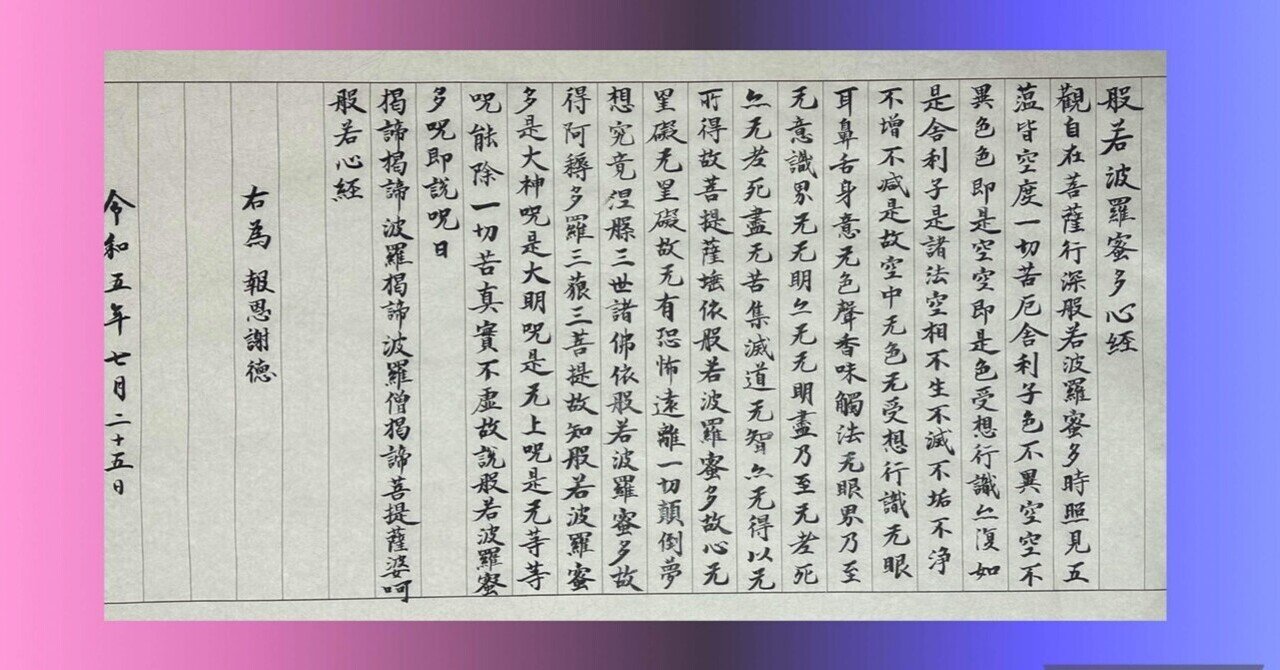 般若波羅蜜多心経
觀自在菩薩行深般若波羅蜜多時照見五
薀皆空度一切苦厄舍利子色不異空空不
異色色即是空空即是色受想行識亦復如
是舍利子是諸法空相不生不滅不垢不浄
不增不減是故空中无色无受想行識无眼
耳鼻舌身意无色聲香味觸法无眼界乃至
无意識界无无明亦无无明盡乃至无老死
亦无老死盡无苦集滅道无智亦无得以无
所得故菩提薩埵依般若波羅蜜多故心无
罣礙无罣礙故无有恐怖遠離一切顛倒夢
想究竟涅槃三世諸佛依般若波羅蜜多故
得阿耨多羅三藐三菩提故知般若波羅蜜
多是大神呪是大明呪是无上呪是无等等
呪能除一切苦真實不虛故説般若波羅蜜
多呪即説呪曰
揭諦揭諦波羅揭諦波羅僧揭諦菩提薩婆呵
般若心経
右為 報恩謝德
令和五年七月二十五日